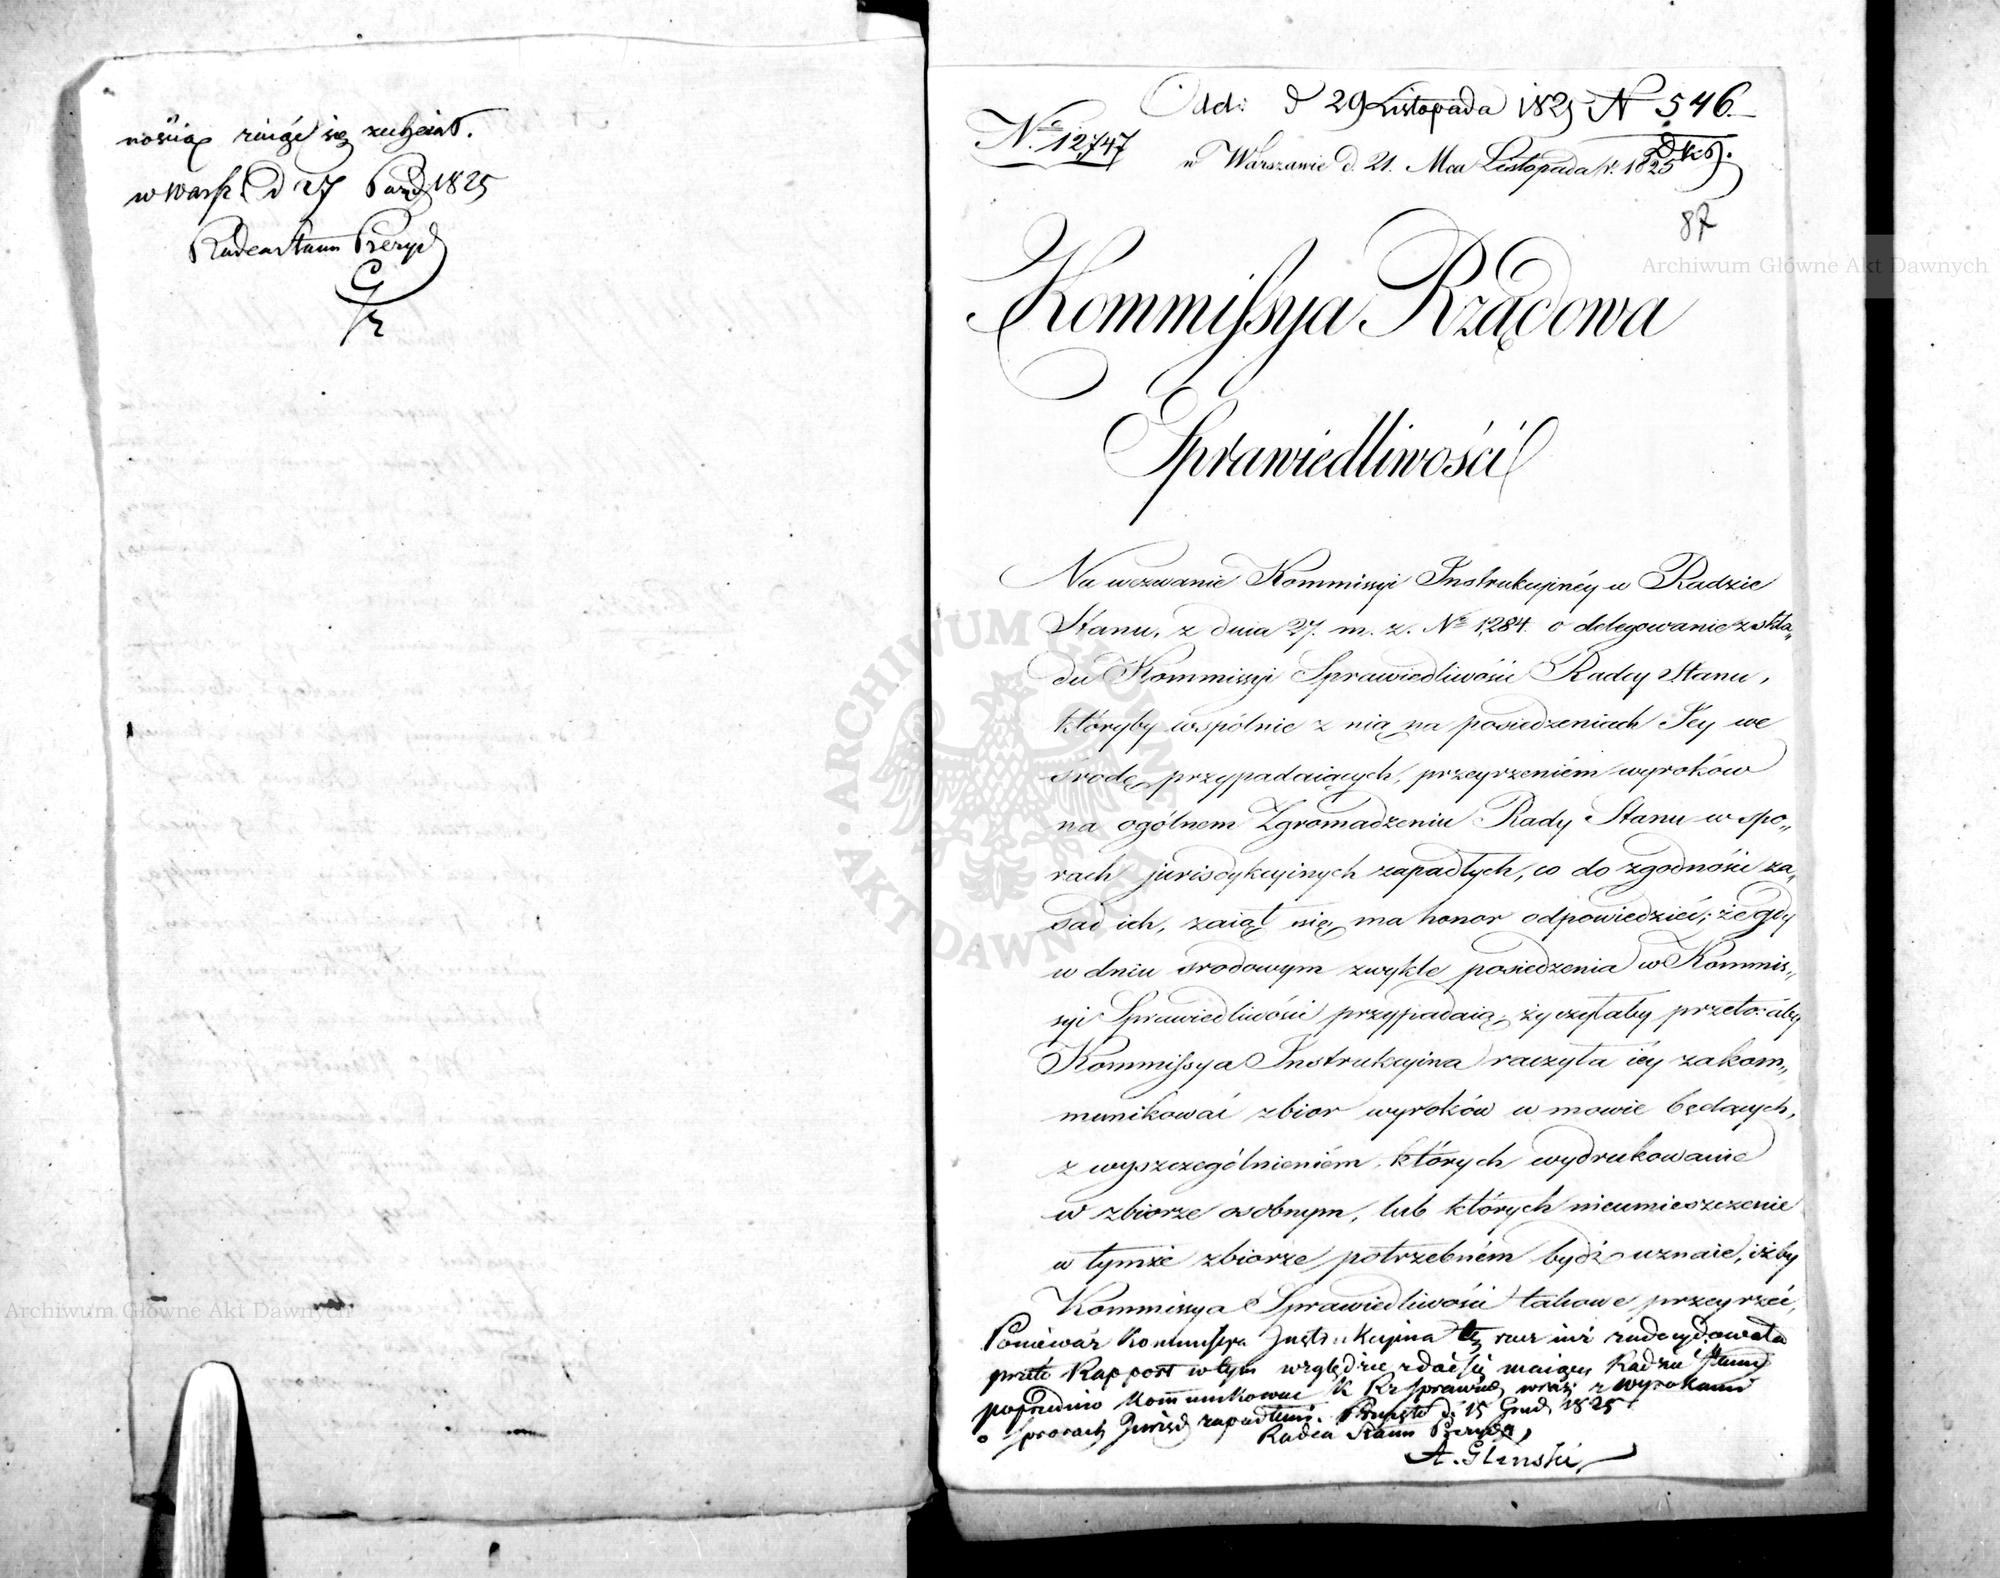 nością ziąć się zechciał.
w Warsz. d 27 Paźd 1825
Radca Stanu Prezyd
Odd: d 29 Listopada 1825 N 546
No. 12,747
w Warszawie d. 21. Mca Listopada r. 1825
87
Kommissya Rządowa
Sprawiedliwości
Na wezwanie Kommissyi Instrukcyinéy w Radzie
Stanu, z dnia 27. m. z. No 1,284. o delegowanie z skła„
du Kommissyi Sprawiedliwości Radcy Stanu,
któryby wspólnie z nią na posiedzeniach Jey we
srodę przypadaiących, przeyrzeniem wyroków
na ogólnem Zgromadzeniu Rady Stanu w spo„
rach jurisdykcyinych zapadłych, co do zgodności za„
sad ich, zaiął się, ma honor odpowiedzieć; że gdy
w dniu srodowym zwykle posiedzenia w Kommis„
syi Sprawiedliwości przypadaią; życzyłaby przeto: aby
Kommissya Instrukcyina raczyła iéy zakom„
munikować zbior wyroków w mowie będących,
z wyszczególnieniem, których wydrukowanie
w zbiorze osobnym, lub których nieumieszczenie
w tymże zbiorze potrzebném bydź uznaie, iżby
Kommissya Sprawiedliwości takowe przeyrzeć,
Ponieważ Kommissya Instrukcyina tę rzecz iuż zadecydowała
przeto Rapport w tym względzie zdać się maiący Radzie Stanu
poprzednio Kommunikować K Rz Sprawied wraz z wyrokami
o sporach Jurisd zapadłemi. d 15 Grud 1825
Radca Stanu Prezyd,
A. Gliński
Archiwum Główne Akt Dawnych
Archiwum Główne Akt Dawnych
ARCHIWUM GŁÓWNE AKT DAWNYCH